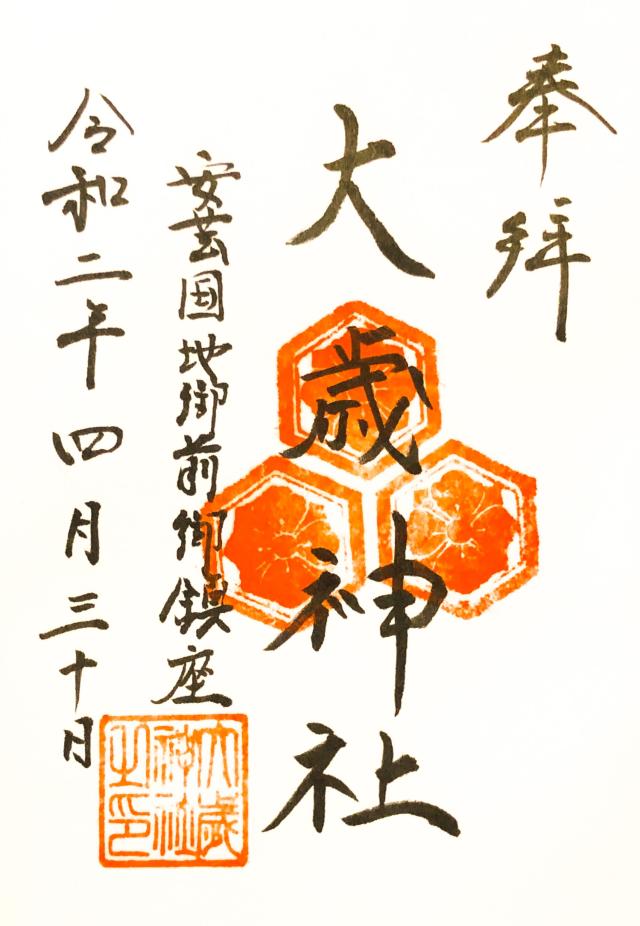 奉拝
大歳神社
安芸国地御前御鎮座
令和二年四月三十日
大歳
神社
之印